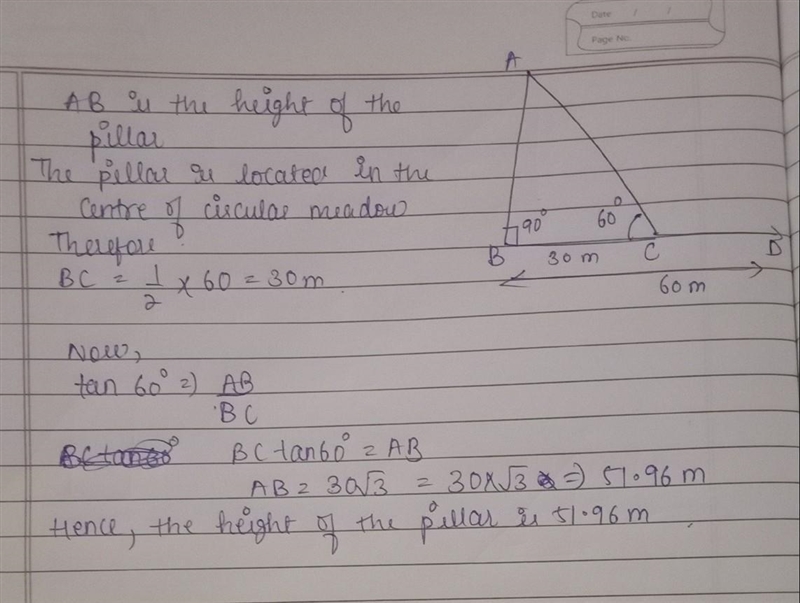 Date / /
Page No.
A
AB is the height of the
pillar
The pillar is located in the
centre of circular meadow
Therefore
BC = 1/2 × 60 = 30 m
90°
60°
B
30 m
C
D
60 m
Now,
tan 60° => AB/BC
BC tan 60° = AB
AB = 30√3 = 30×√3 => 51.96 m
Hence, the height of the pillar is 51.96 m